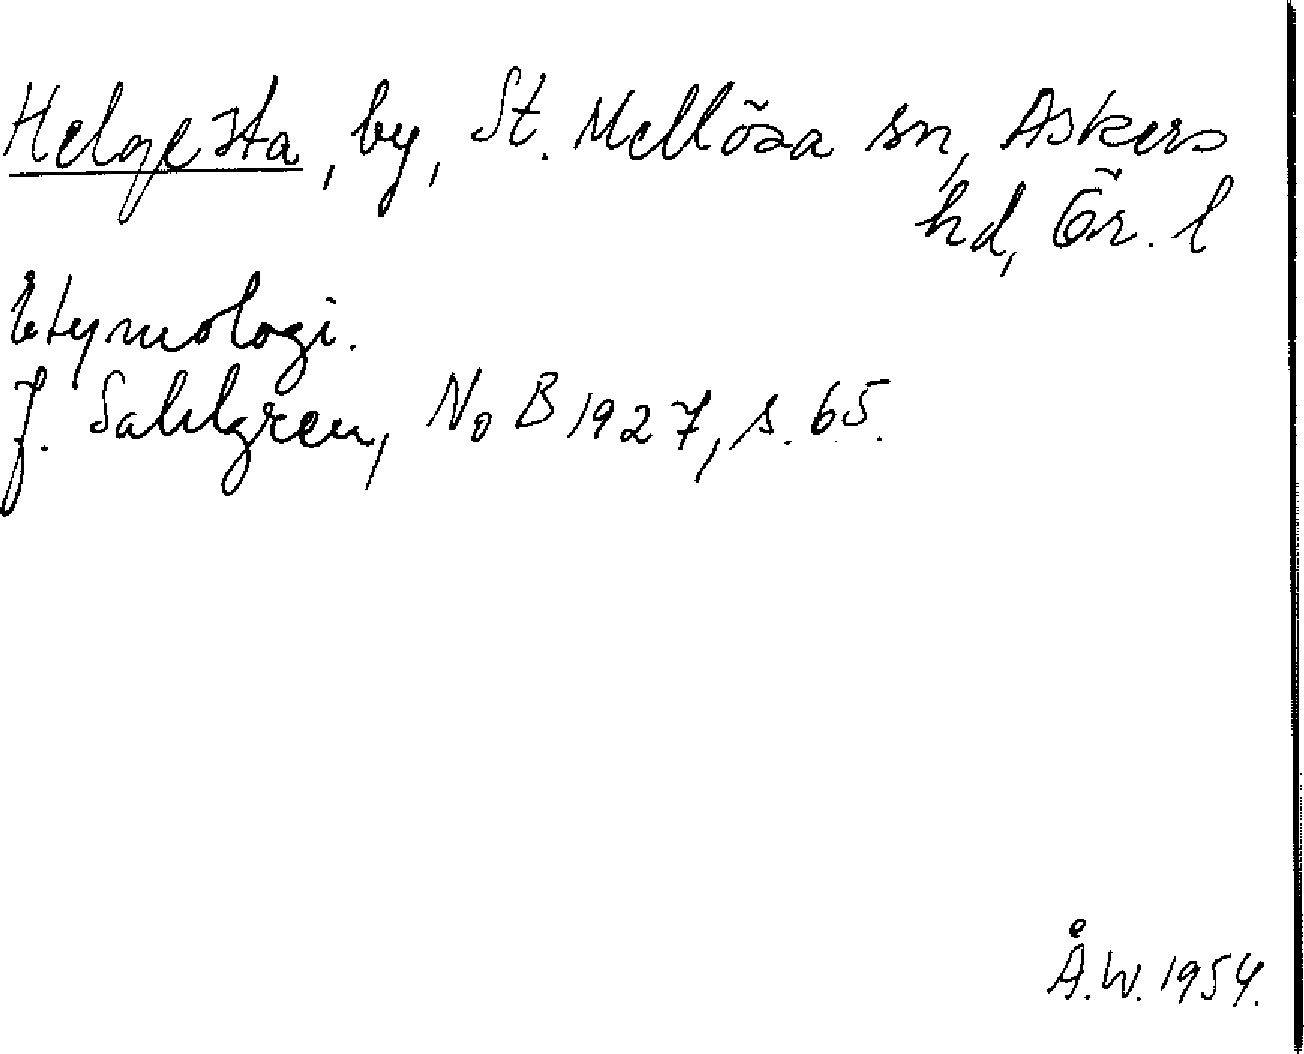 Helgesta, by, St. Mellösa sn, Askers
hd, Ör. l
Etymologi.
J. Sahlgren, NoB 1927, s. 65.
Å.W. 1954.